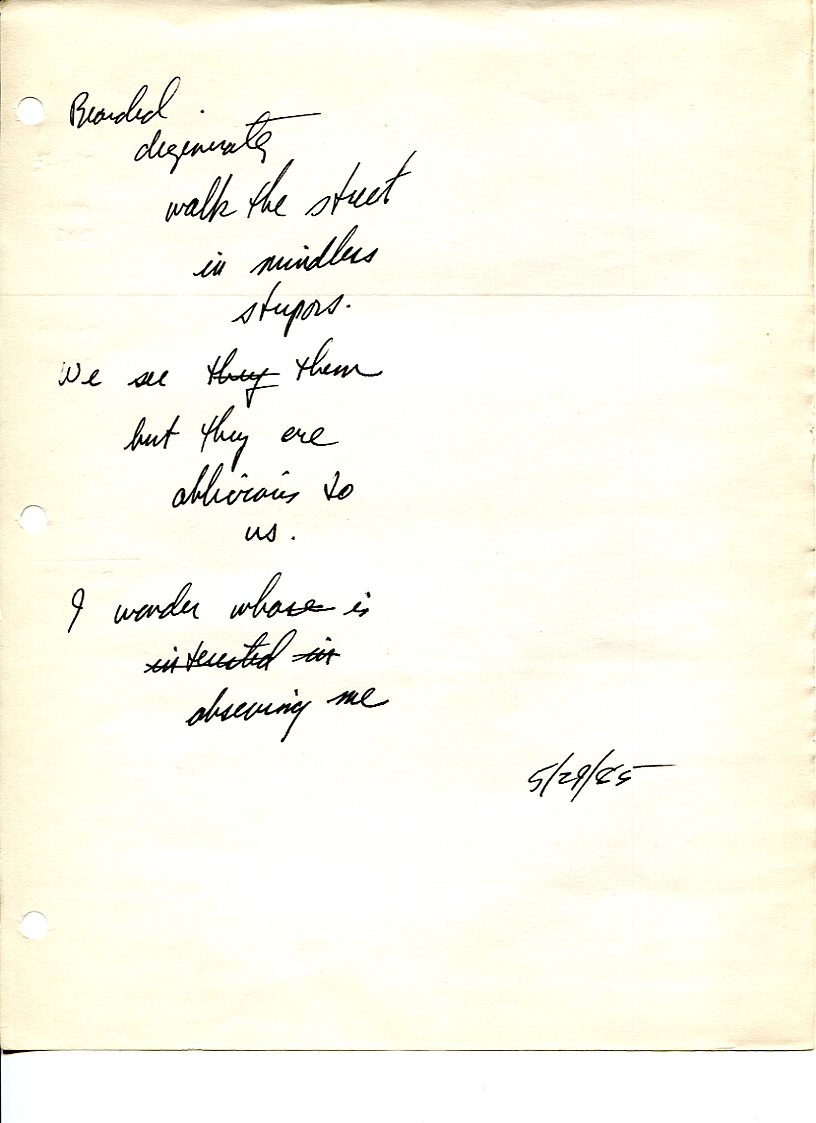 Bearded
degenerates
walk the street
in mindless
stupors.
We see they them
but they are
oblivious to
us.
I wonder whose is
interested in
observing me
5/29/85